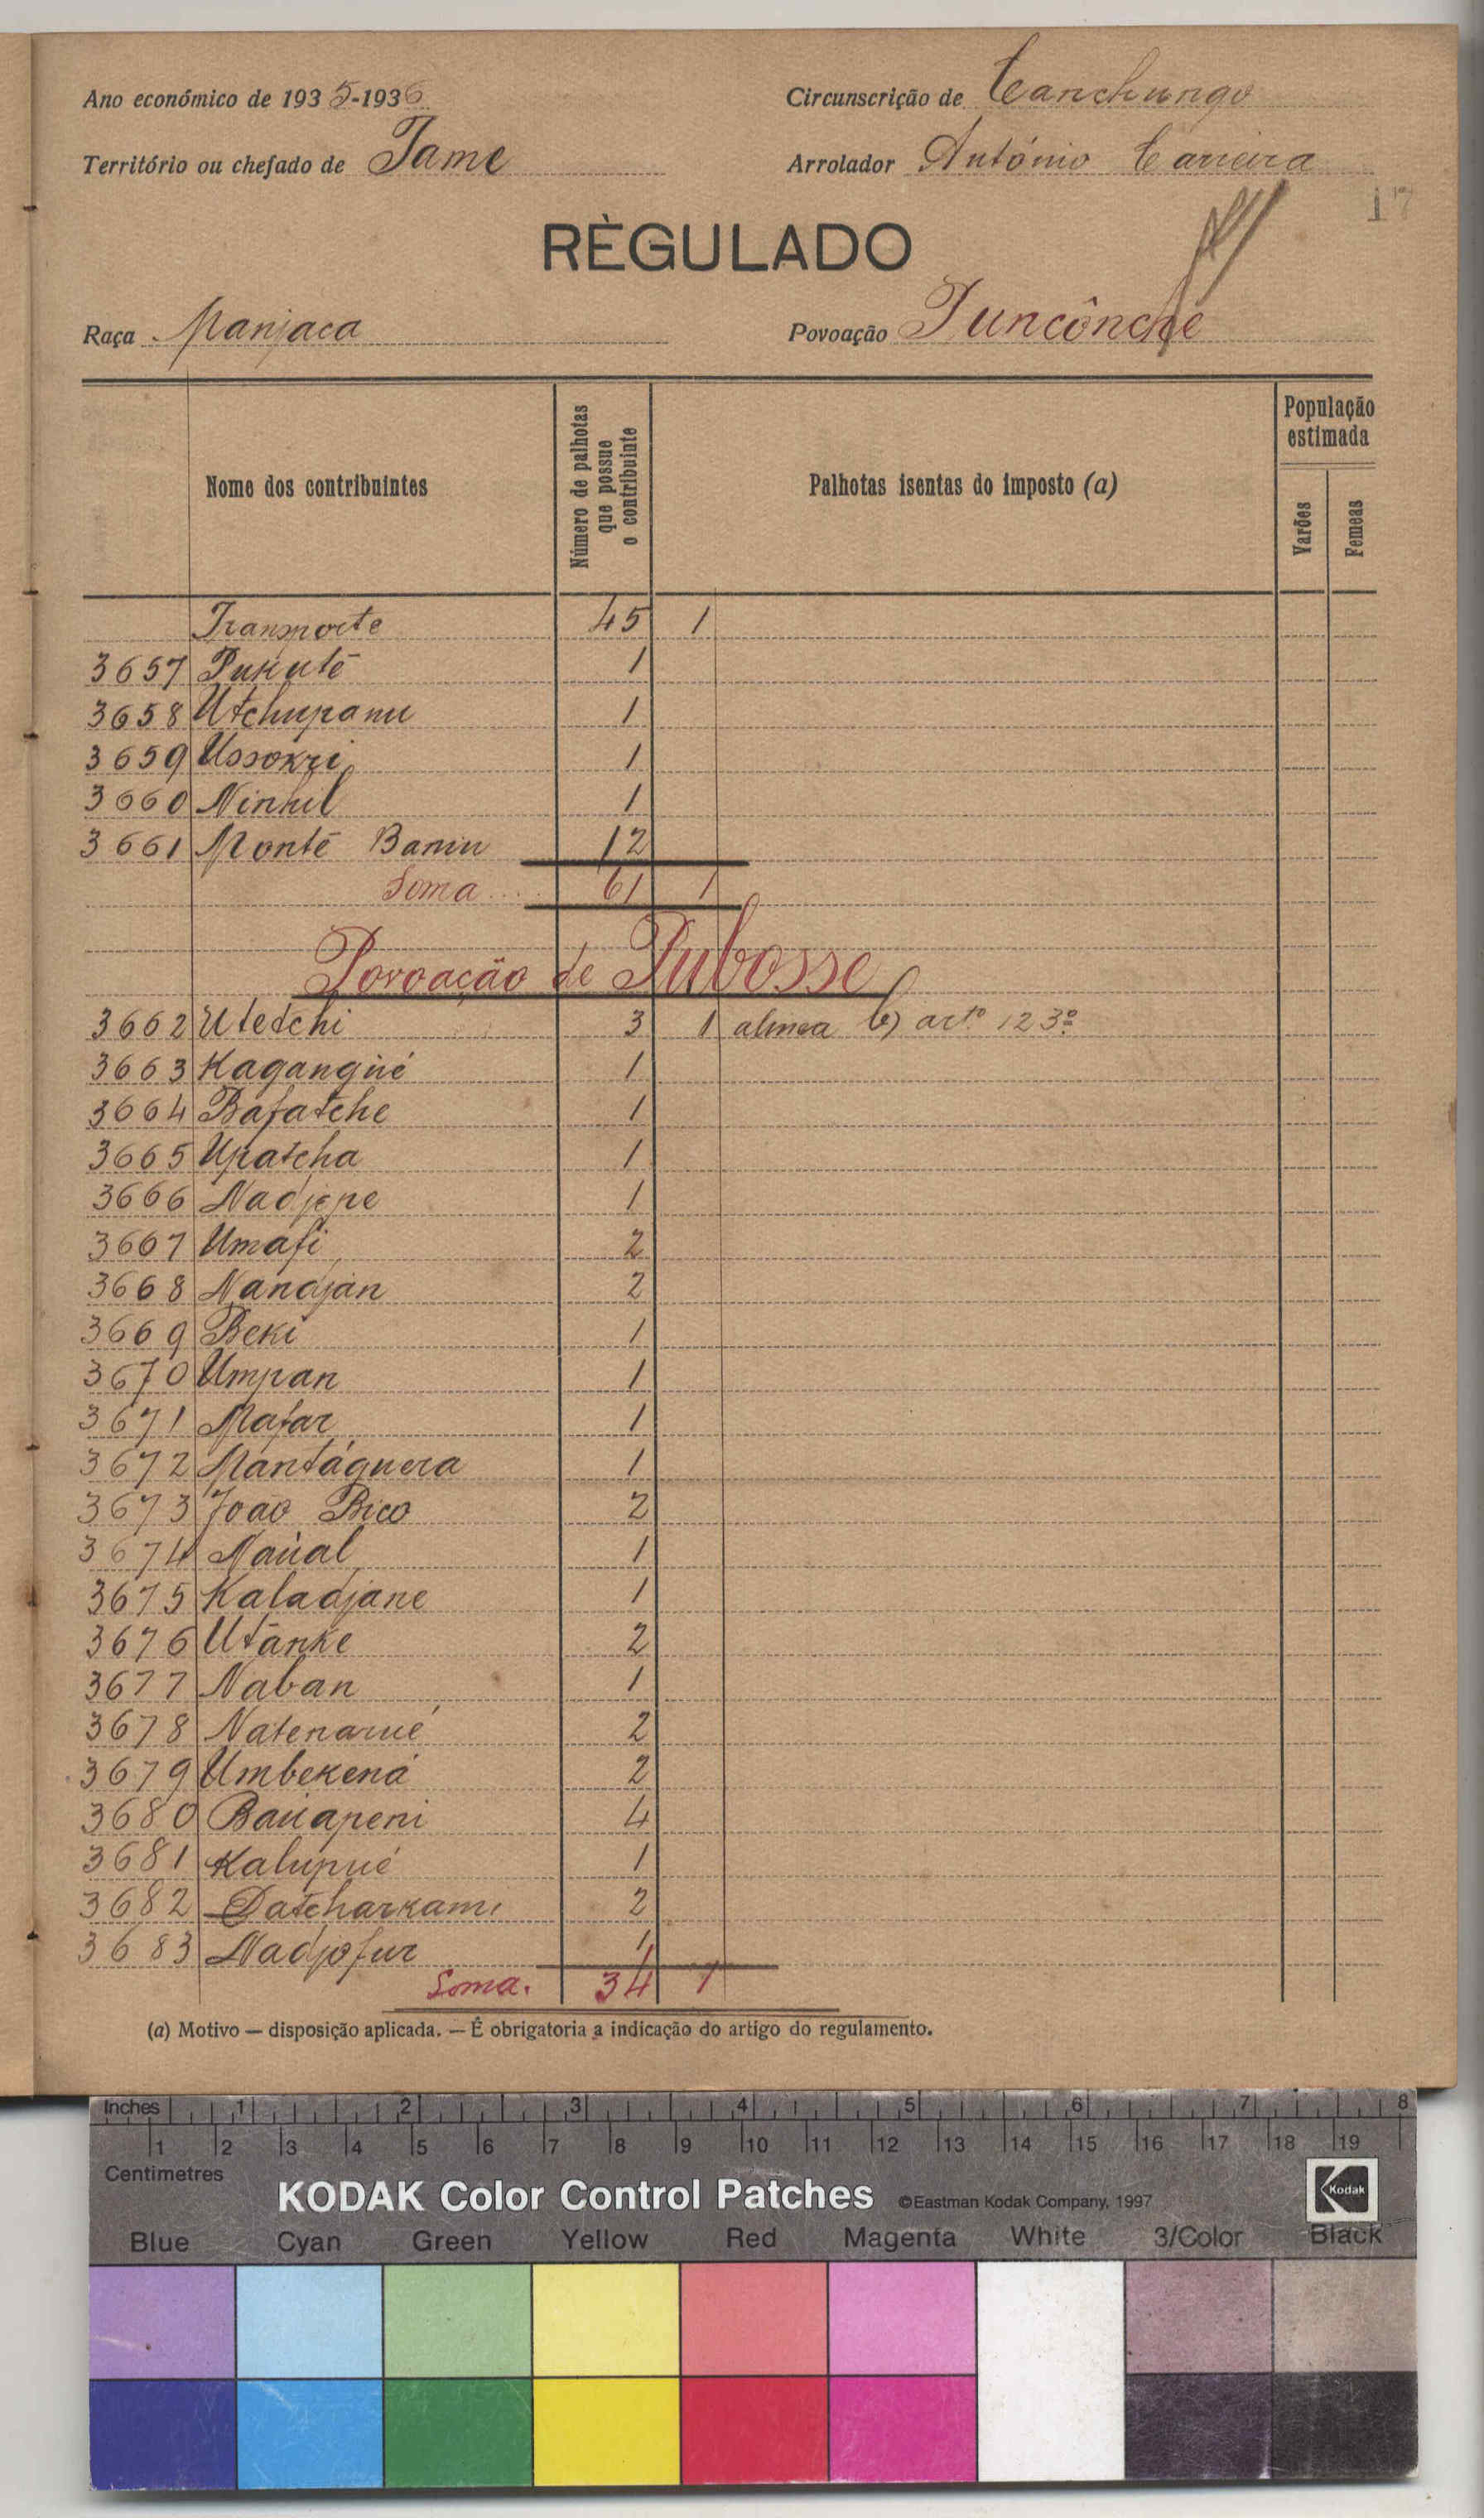 Ano económico de 1935-1936
Circunscrição de Canchungo
Território ou chefado de Tame
Arrolador António Carreira
17
RÈGULADO
Raça Manjaca
Povoação Puncônche
Nome dos contribuintes
Número de palhotas que possue o contribuinte
Palhotas isentas do imposto (a)
População estimada
Varões
Femeas
Transporte 45 1
3657 Pukutê 1
3658 Utchupanu 1
3659 Ussokri 1
3660 Ninhil 1
3661 Montê Baniu 12
Soma 61 1
Povoação de Pubosse
3662 Utetchi 3 1 alinea b) artº 123º
3663 Kagangüé 1
3664 Bafatche 1
3665 Upatcha 1
3666 Nadjope 1
3667 Umafi 2
3668 Nandjan 2
3669 Beki 1
3670 Umpan 1
3671 Mafar 1
3672 Mantáguera 1
3673 João Bico 2
3674 Naúal 1
3675 Kaladjane 1
3676 Utanke 2
3677 Naban 1
3678 Natenarué 2
3679 Umbekená 2
3680 Bauapeni 4
3681 Kalupué 1
3682 Datcharkami 2
3683 Nadjofur 1
Soma. 34 1
(a) Motivo — disposição aplicada. — É obrigatoria a indicação do artigo do regulamento.
Inches 1 2 3 4 5 6 7 8
1 2 3 4 5 6 7 8 9 10 11 12 13 14 15 16 17 18 19
Centimetres
KODAK Color Control Patches ©Eastman Kodak Company, 1997 Kodak
Blue Cyan Green Yellow Red Magenta White 3/Color Black